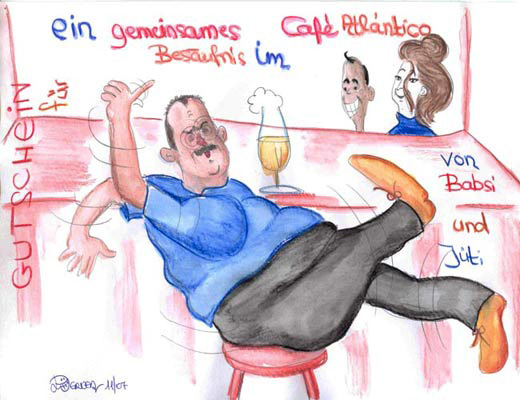 GUTSCHEIN
für
ein gemeinsames
Besäufnis im
Café Atlántico
von
Babsi
und
Jüti
11/07